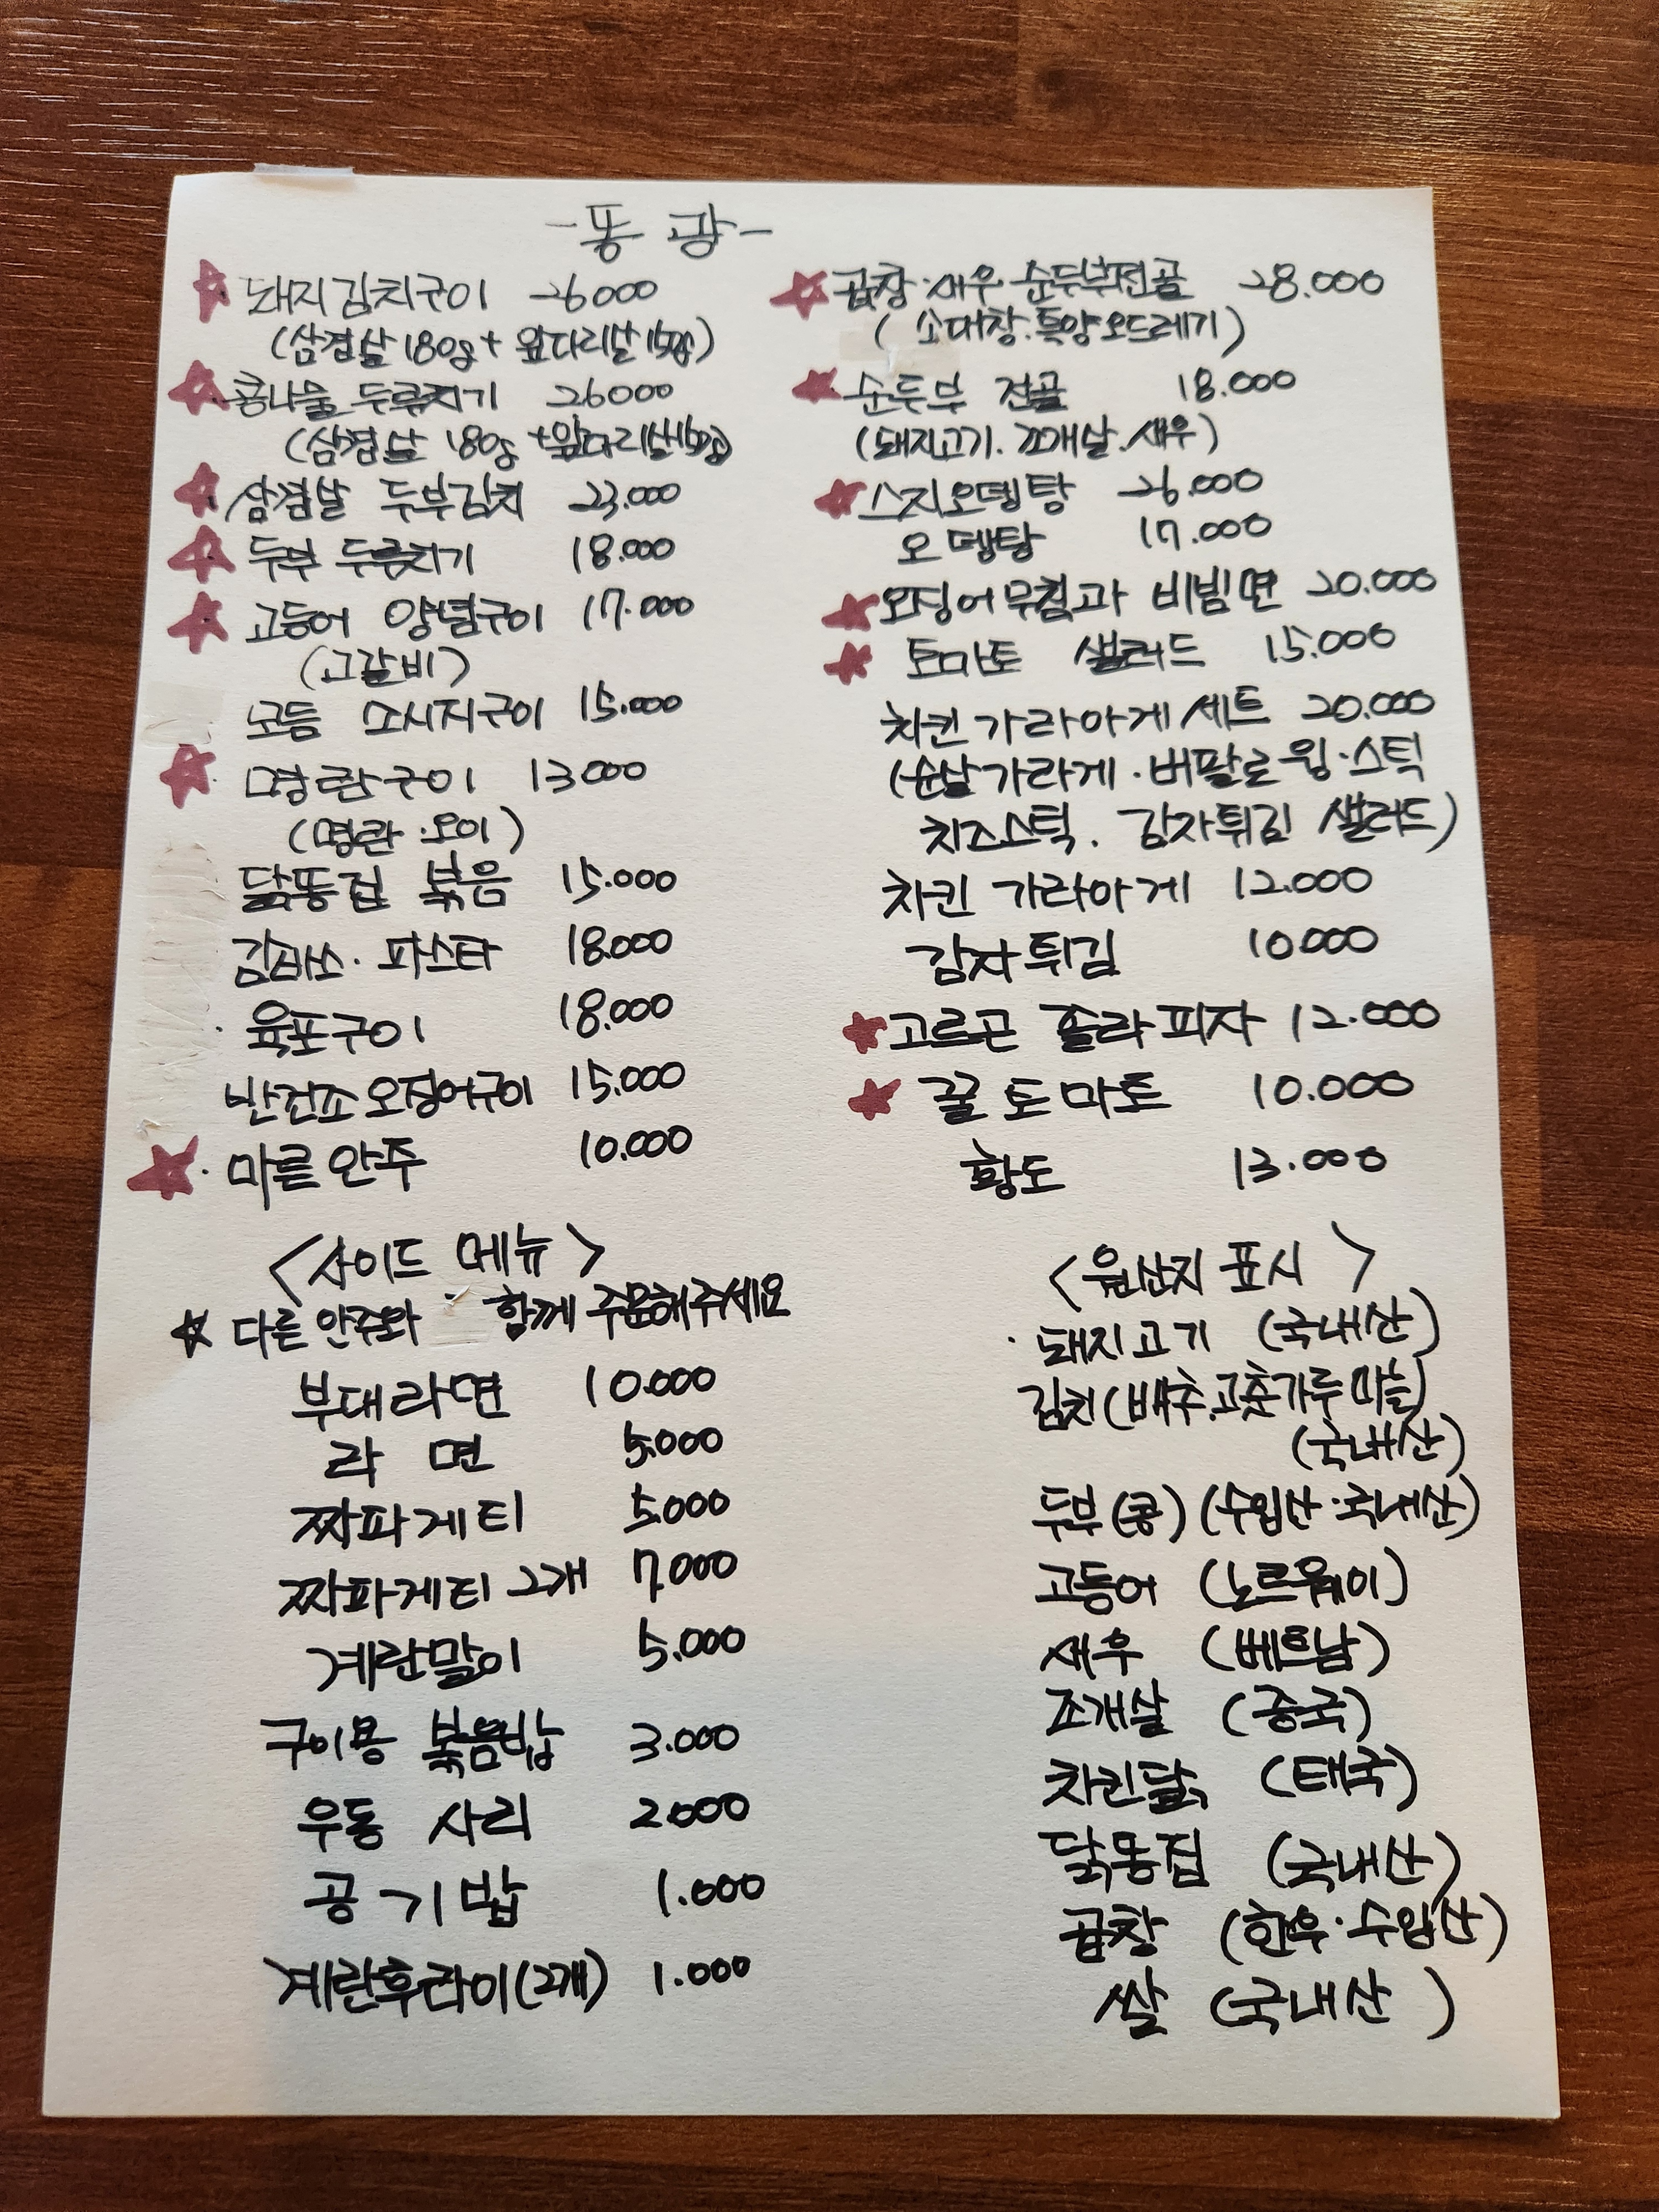 -똥광-
돼지김치구이 26000
(삼겹살180g+앞다리살150g)
콩나물 두루치기 26000
(삼겹살 180g+앞다리살150g)
삼겹살 두부김치 23.000
두부 두루치기 18.000
고등어 양념구이 17.000
(고갈비)
모듬 소시지구이 15.000
명란구이 13000
(명란.오이)
닭똥집 볶음 15.000
감바스. 파스타 18.000
육포구이 18.000
반건조오징어구이 15.000
마른안주 10.000
곱창.새우 순두부전골 28.000
(소대창.특양오드레기)
순두부 전골 18.000
(돼지고기.조개살.새우)
스지오뎅탕 26.000
오뎅탕 17.000
오징어무침과 비빔면 20.000
토마토 샐러드 15.000
치킨가라아게세트 20.000
(순살가라게.버팔로윙.스틱
치즈스틱. 감자튀김 샐러드)
치킨 가라아게 12.000
감자튀김 10000
고르곤 졸라피자 12.000
꿀토마토 10.000
황도 13.000
<사이드 메뉴>
☆ 다른안주와 함께 주문해주세요
부대라면 10.000
라면 5.000
짜파게티 5.000
짜파게티 2개 7.000
계란말이 5.000
구이용 볶음밥 3.000
우동 사리 2.000
공기밥 1.000
계란후라이(2개) 1.000
<원산지 표시>
돼지고기 (국내산)
김치(배추.고춧가루마늘)
(국내산)
두부(콩) (수입산.국내산)
고등어 (노르웨이)
새우 (베트남)
조개살 (중국)
치킨닭 (태국)
닭똥집 (국내산)
곱창 (한우.수입산)
쌀 (국내산)